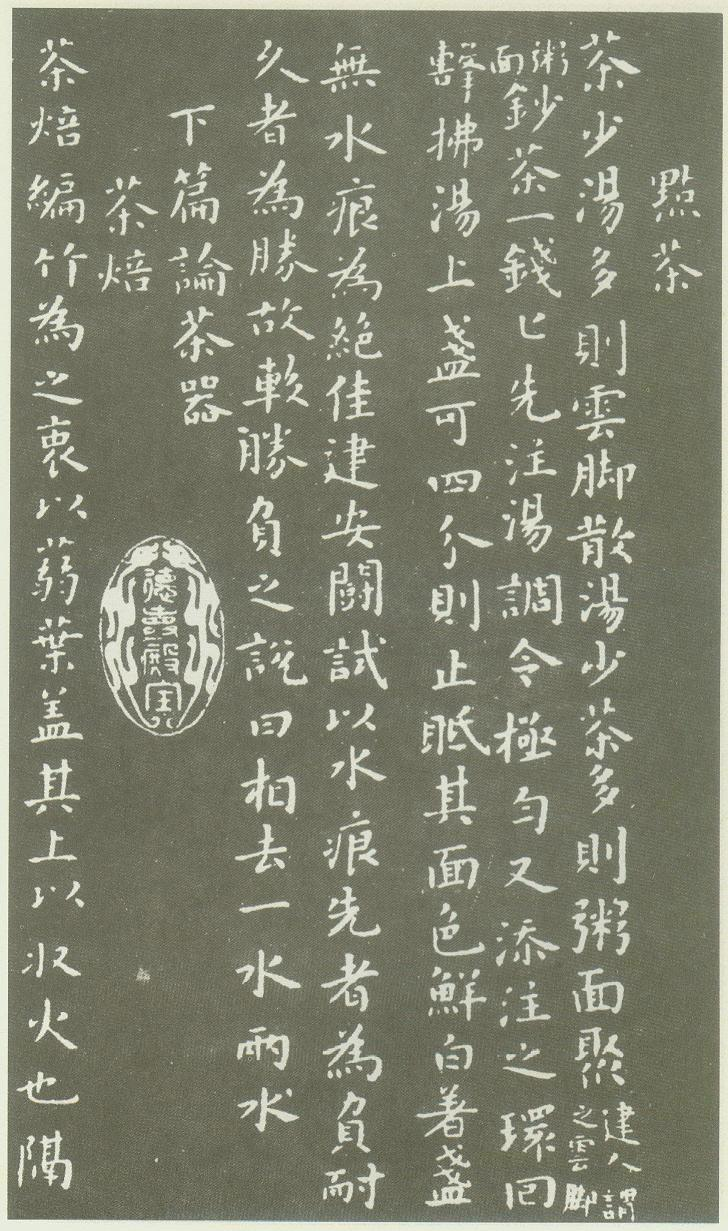 點茶
茶少湯多則雲脚散湯少茶多則粥面聚建人謂之雲脚
粥面鈔茶一錢匕先注湯調令極勻又添注之環回
擊拂湯上盞可四分則止眡其面色鮮白著盞
無水痕為絕佳建安鬪試以水痕先者為負耐
久者為勝故較勝負之說曰相去一水兩水
下篇論茶器
茶焙
茶焙編竹為之裹以蒻葉盖其上以収火也隔
德壽殿宝